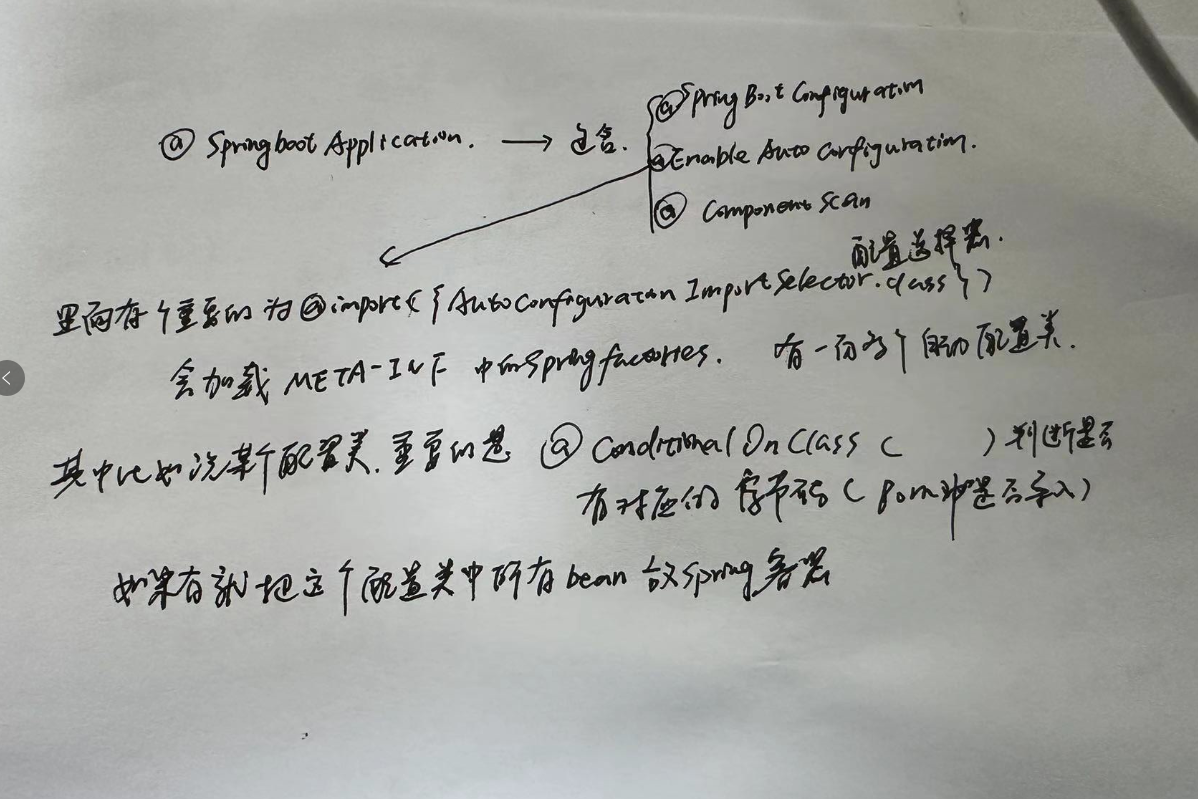 @ Springboot Application. → 包含.
@SpringBoot Configuration
@Enable Auto Configuration.
@ Component Scan
配置选择器.
里面有个重要的为@import({AutoConfiguration ImportSelector.class})
会加载 META-INF 中的Spring factories. 有一百多个自动配置类.
其中比如说某个配置类,重要的是 @ Conditional On Class ( ) 判断是否
有对应的字节码(pom中是否导入)
如果有就把这个配置类中所有bean放spring容器